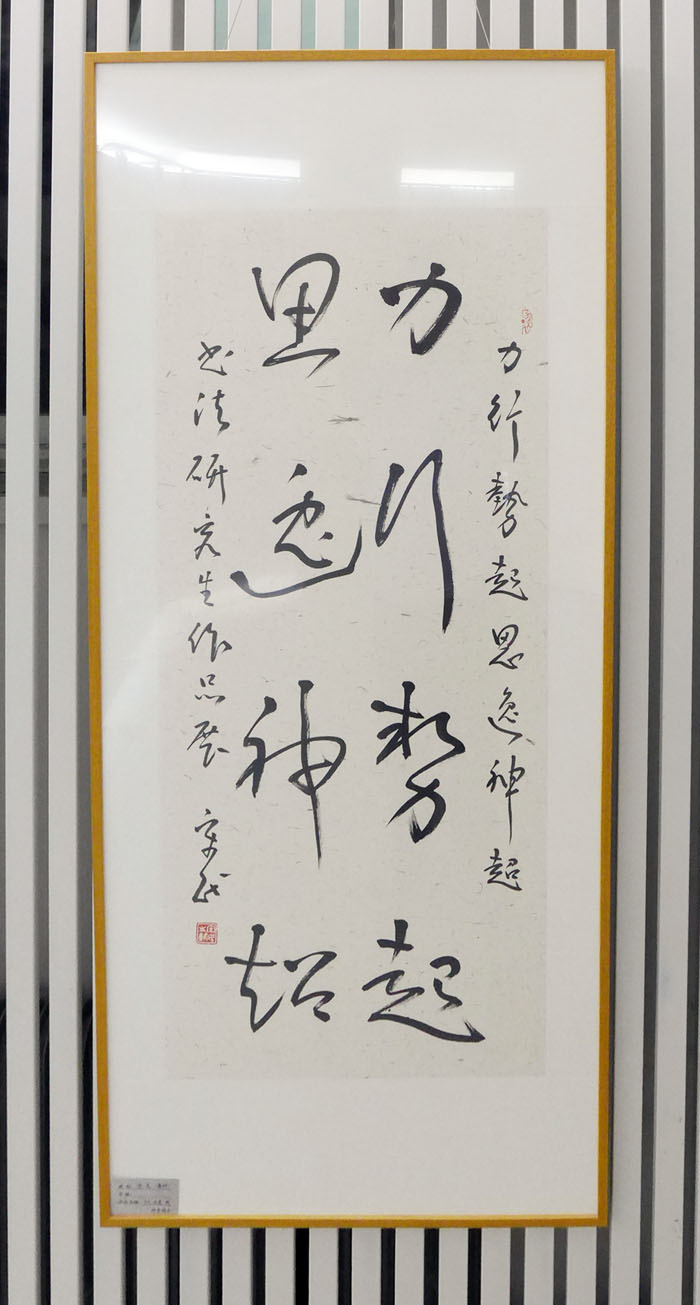 力行勢起思逸神超
力行勢起
思逸神超
书法研究生作品展